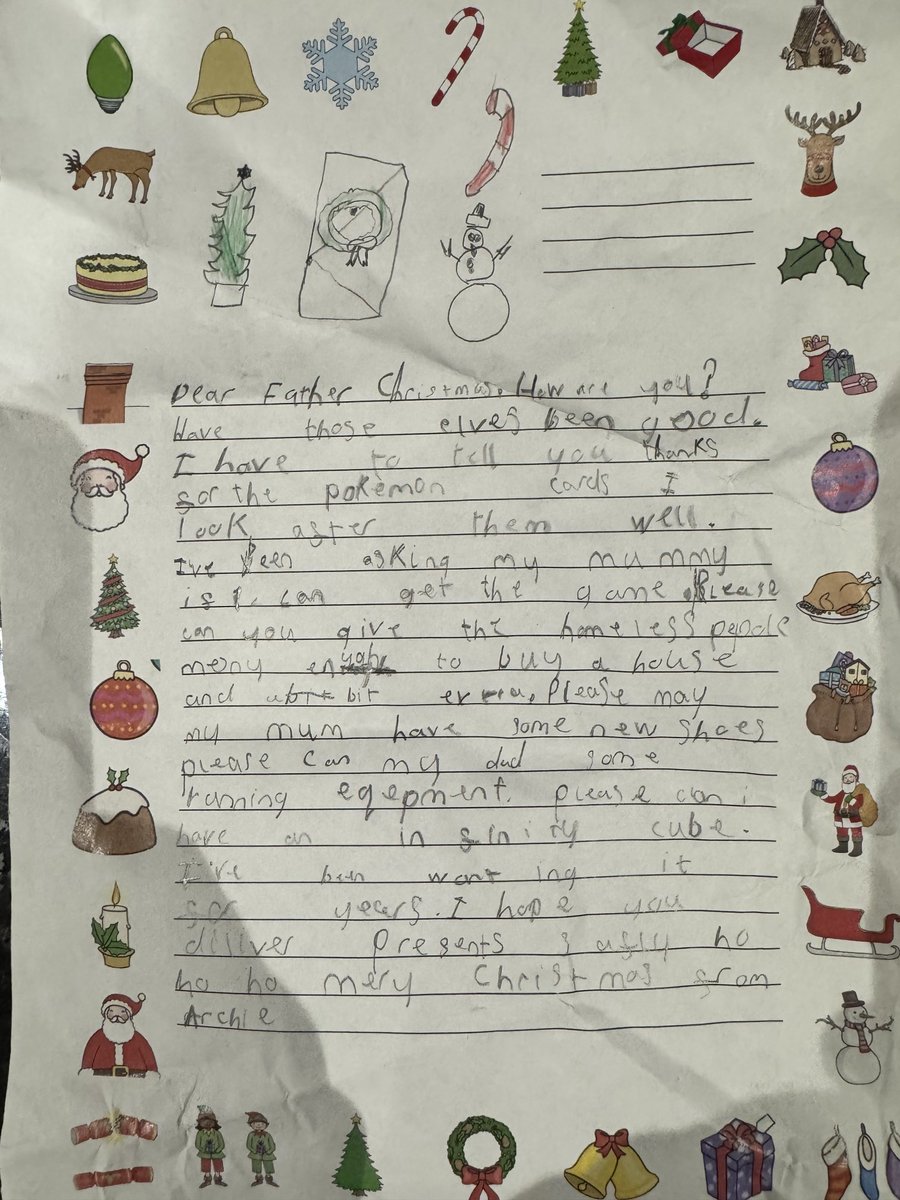 Dear Father Christmas. How are you?
Have those elves been good.
I have to tell you thanks
for the pokemon cards I
look after them well.
I've Been asking my mummy
if I can get the game Please
can you give the homeless people
meny enough to buy a house
and bit extra. Please may
my mum have some new shoes
please can my dad some
running eqepment. please can i
have an infinity cube.
I've been wanting it
for years. I hope you
diliver presents safly ho
ho ho mery Christmas from
Archie